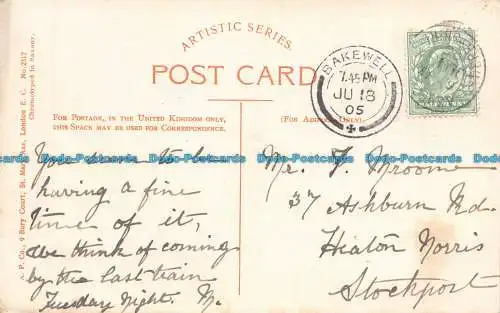 ARTISTIC SERIES.
POST CARD.
BAKEWELL
7.45 PM
JU 18
05
FOR POSTAGE, IN THE UNITED KINGDOM ONLY,
THIS SPACE MAY BE USED FOR CORRESPONDENCE.
(FOR ADDRESS ONLY.)
A. P. Co., 9 Bury Court, St. Mary Axe, London E. C. No. 2117
Chromotyped in Saxony.
You seem to be
having a fine
time of it,
We think of coming
by the last train
Tuesday Night. M.
Mr. J. Broome
37 Ashburn Rd.
Heaton Norris
Stockport
Dodo-Postcards